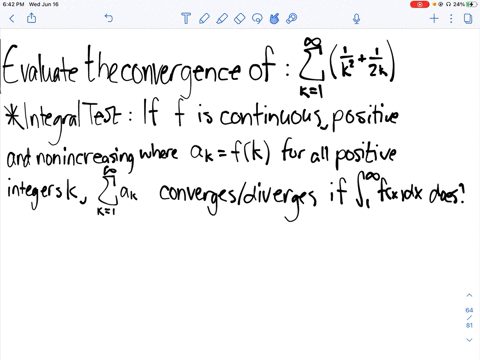 6:42 PM Wed Jun 16
24%
Evaluate the convergence of : ∞∑k=1 (1/k² + 1/2k)
*Integral Test : If f is continuous, positive
and nonincreasing where aₖ = f(k) for all positive
integers k, ∞∑k=1 aₖ converges/diverges if ∫₁^∞ f(x)dx does?
64
/
81